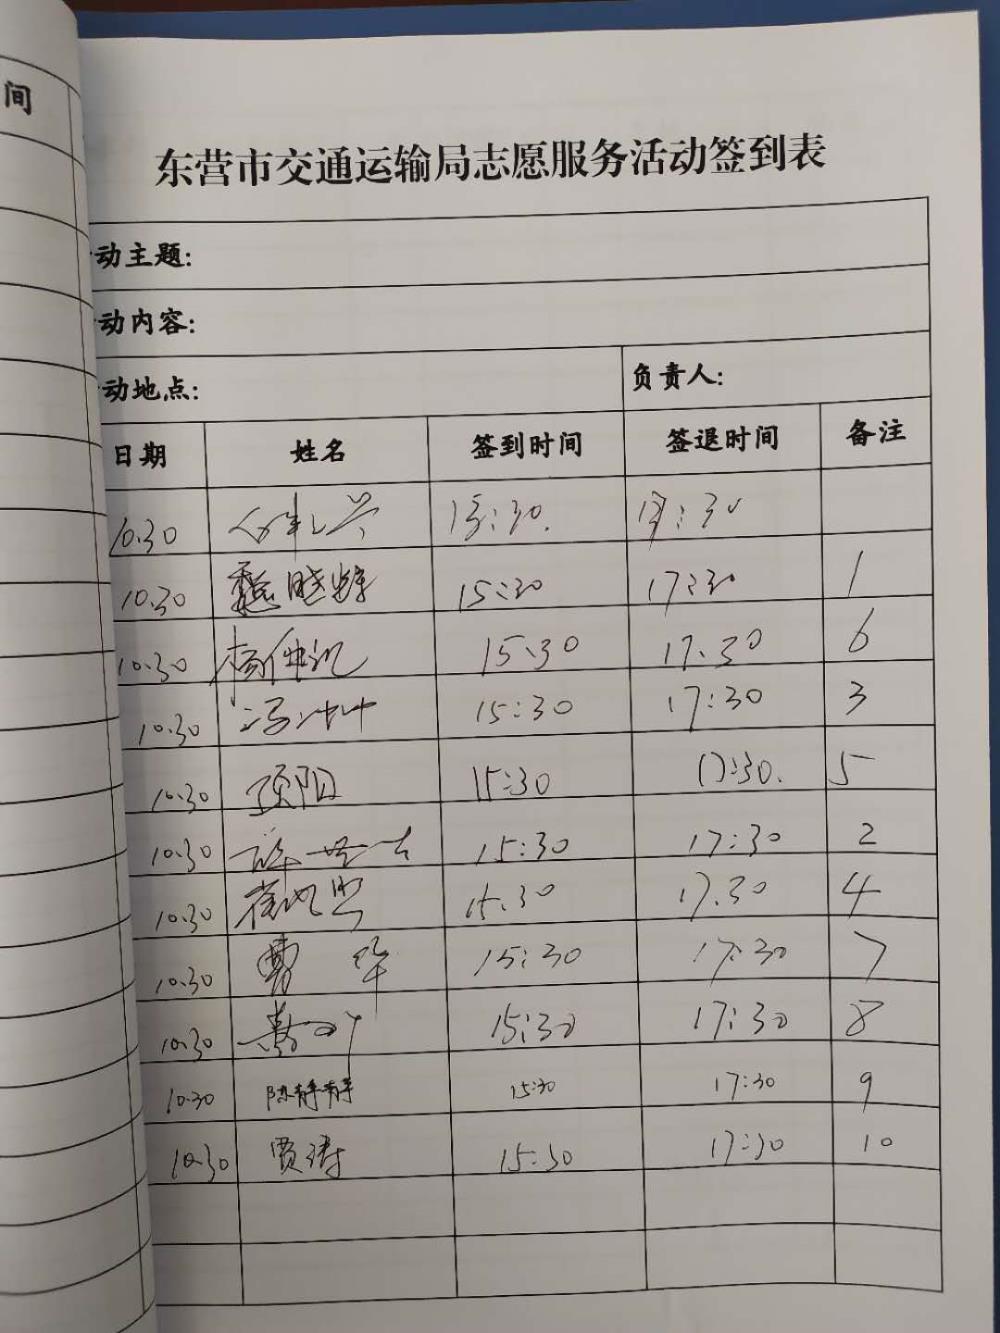 间
东营市交通运输局志愿服务活动签到表
动主题:
动内容:
动地点: 负责人:
日期 姓名 签到时间 签退时间 备注
10.30 15:30. 17:30
10.30 魏晓辉 15:30 17:30 1
10.30 15:30 17:30 6
10.30 冯冲冲 15:30 17:30 3
10.30 顾阳 15:30 17:30. 5
10.30 15:30 17:30 2
10.30 15:30 17:30 4
10.30 曹华 15:30 17:30 7
10.30 15:30 17:30 8
10.30 陈静静 15:30 17:30 9
10.30 贾涛 15:30 17:30 10